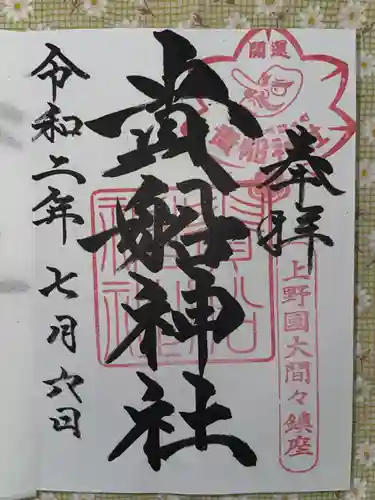 奉拝
開運
貴船神社
上野國大間々鎮座
貴船神社
貴船神社
令和二年七月六日